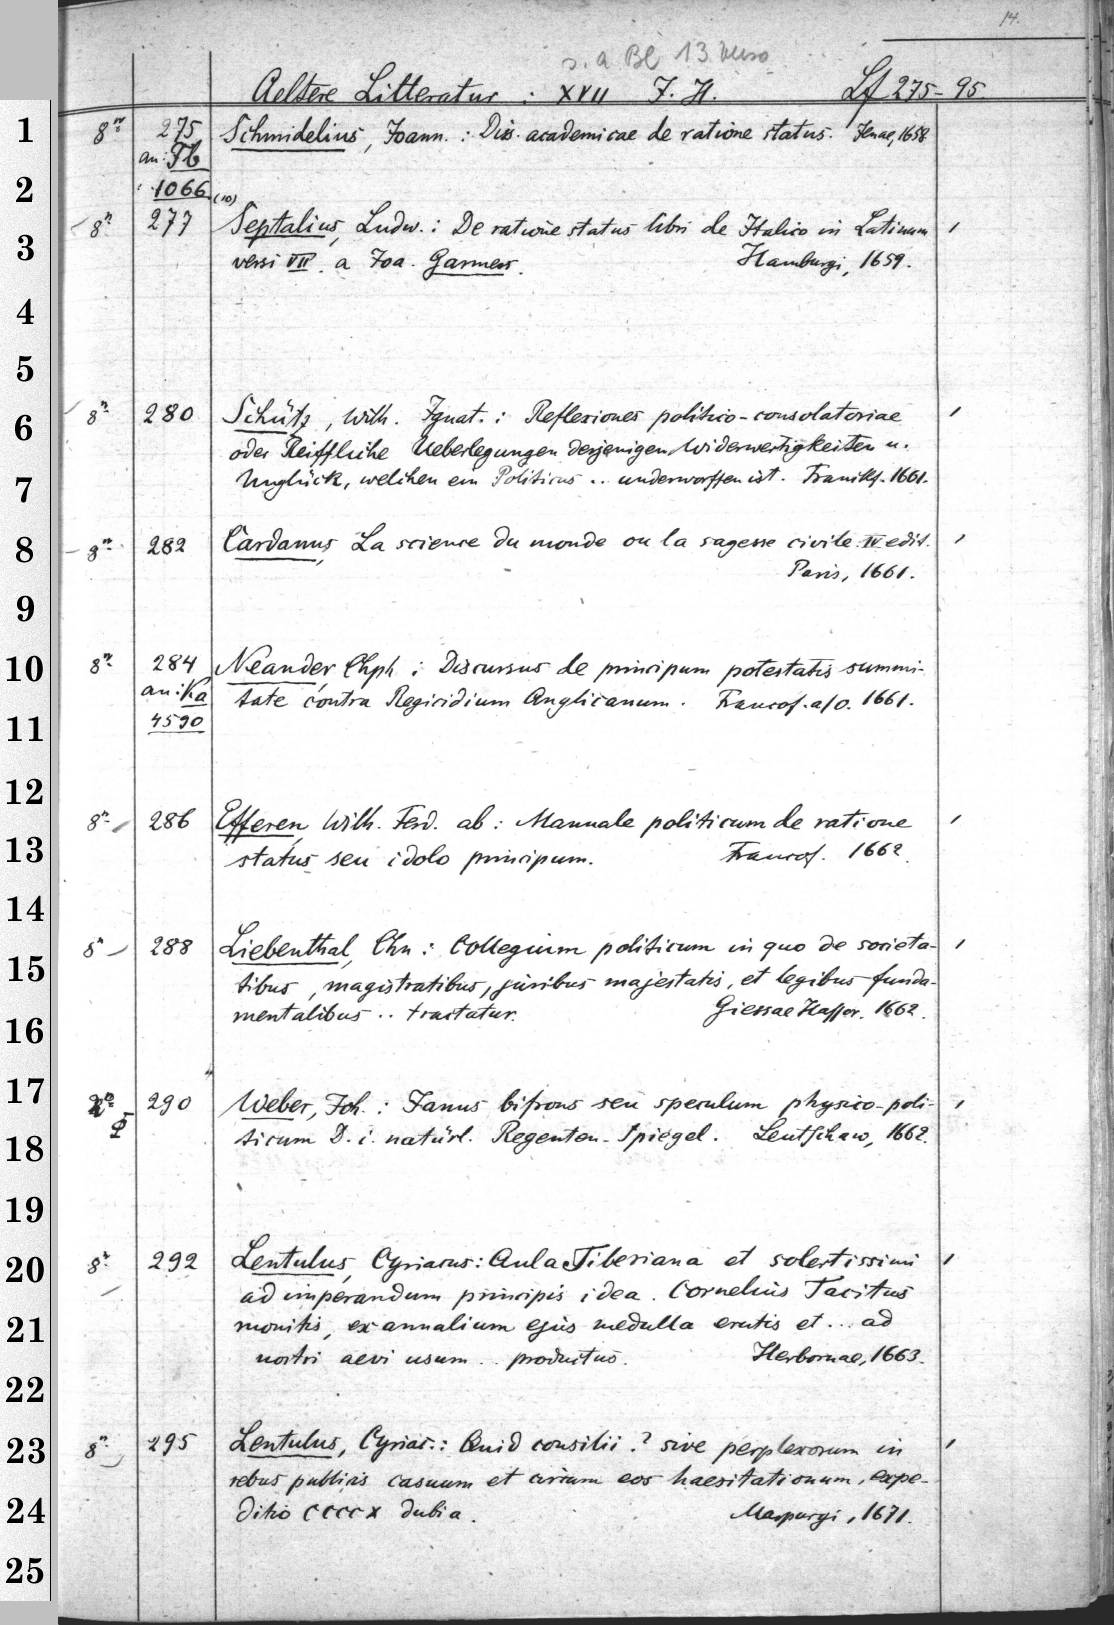 14.
s. a Bl 13 verso
Aeltere Litteratur : XVII J. H. Lf 275-95
1 8º 275 Schmidelius, Joann. : Diss. academicae de ratione status. Jenae, 1658
an: Fb
2 1066 (10)
8º 277 Septalius, Ludw. : De ratione status libri de Italico in Latinum
3 versi VII. a Joa. Garmers. Hamburgi, 1659.
4
5
8º 280 Schütz, Wilh. Ignat. : Reflexiones politico-consolatoriae
6
oder Reiffliche Ueberlegungen desjenigen Widerwertigkeiten u.
7 Unglück, welchen ein Politicus .. underworffen ist. Franckf. 1661.
8 8º 282 Cardanus, La science du monde ou la sagesse civile. IV edit.
Paris, 1661.
9
10 8º 284 Neander, Chph : Discursus de principum potestatis summi-
an: Ka tate contra Regicidium Anglicanum. Francof. a/O. 1661.
11 4590
12
8º 286 Efferen, Wilh. Ferd. ab : Manuale politicum de ratione
13 status seu idolo principum. Francof. 1662.
14
8º 288 Liebenthal, Chn : Collegium politicum in quo de societa-
15
tibus, magistratibus, juribus majestatis, et legibus funda-
16 mentalibus .. tractatur. Giessae Hassor. 1662.
17 290 Weber, Joh. : Janus bifrons seu speculum physico-poli-
18 ticum D. i. natürl. Regenten-Spiegel. Leutschaw, 1662.
19
20 8º 292 Lentulus, Cyriacus : Aula Tiberiana et solertissimi
ad imperandum principis idea. Cornelius Tacitus
21 monitis, ex annalium ejus medulla erutis et .. ad
nostri aevi usum .. productus. Herbornae, 1663.
22
23 8º 295 Lentulus, Cyriac. : Quid consilii? sive perplexorum in
rebus publicis casuum et curium eos haesitationum, expe-
24 ditio CCCCX dubia. Marpurgi, 1671.
25